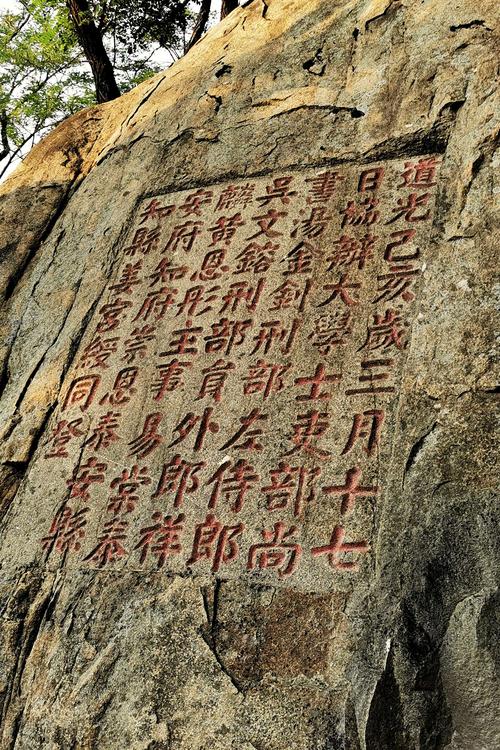 道光己亥歲三月十七
日協辦大學士吏部尚
書湯金釗刑部左侍郎
吳文鎔刑部員外郎祥
麟黃恩彤主事易棠泰
安府知府崇恩泰安縣
知縣姜宮綬同登